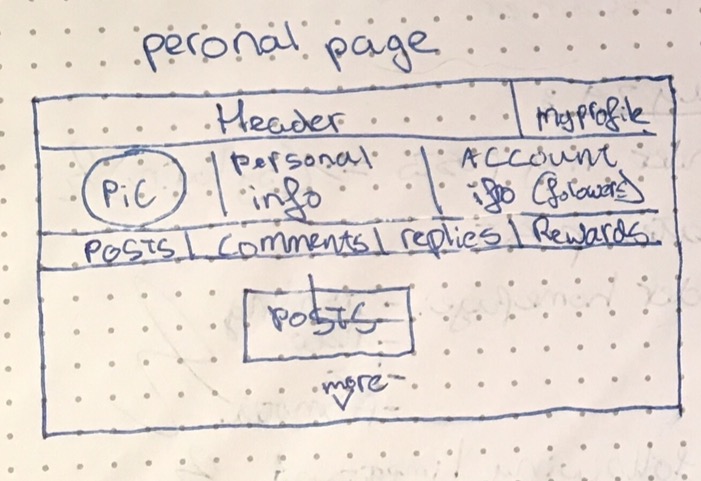 peronal page
Header
myprofile
Pic
personal
info
Account
ifo (folowers)
Posts | comments | replies | Rewards
Posts
more